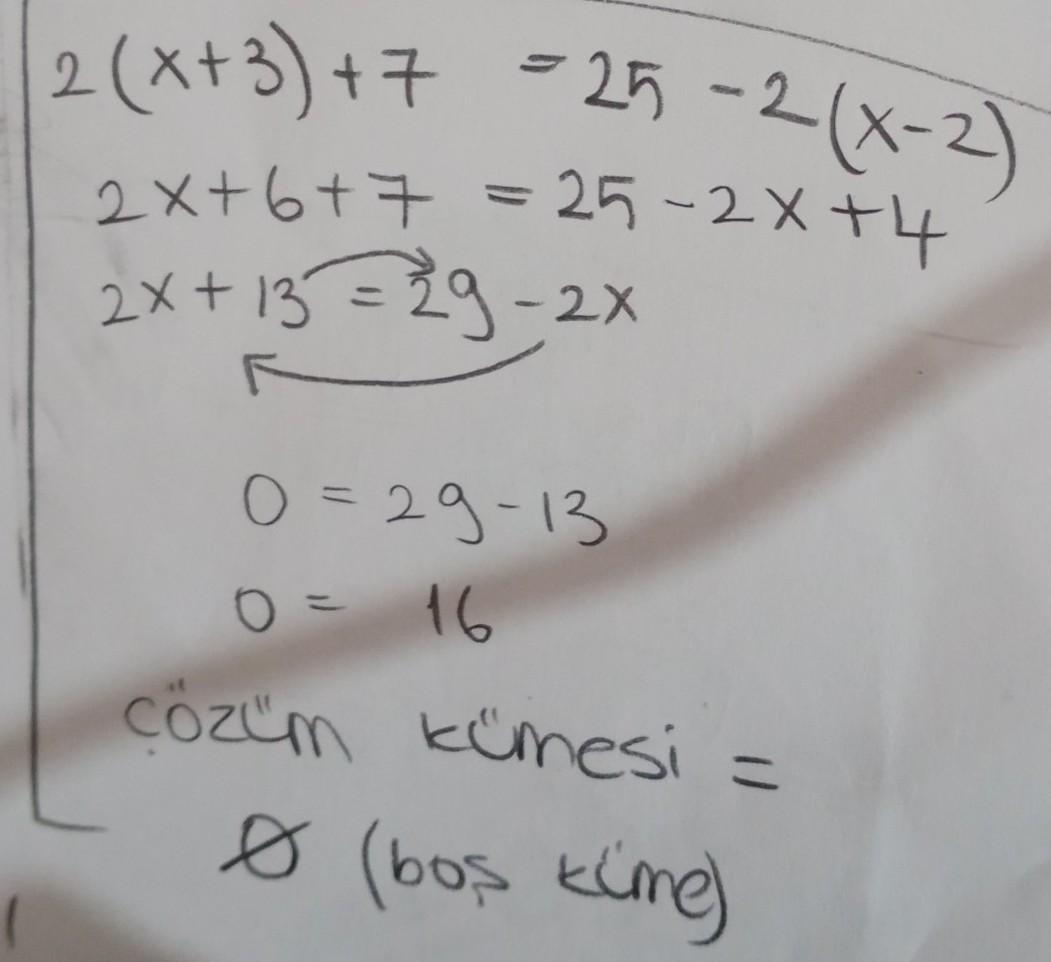 2(x+3)+7 = 25 - 2(x-2)
2x+6+7 = 25 - 2x + 4
2x + 13 = 29 - 2x
0 = 29 - 13
0 = 16
çözüm kümesi =
Ø (boş küme)